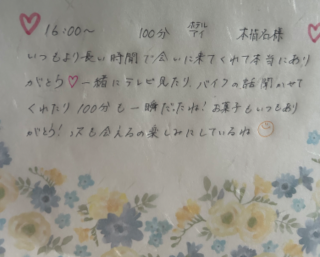 16:00〜 100分 ホテルアイ 様
いつもより長い時間で会いに来てくれて本当にあり
がとう♡一緒にテレビ見たり、バイクの話聞かせて
くれたり100分も一瞬だったね!お菓子もいつもあり
がとう!次も会えるの楽しみにしているね